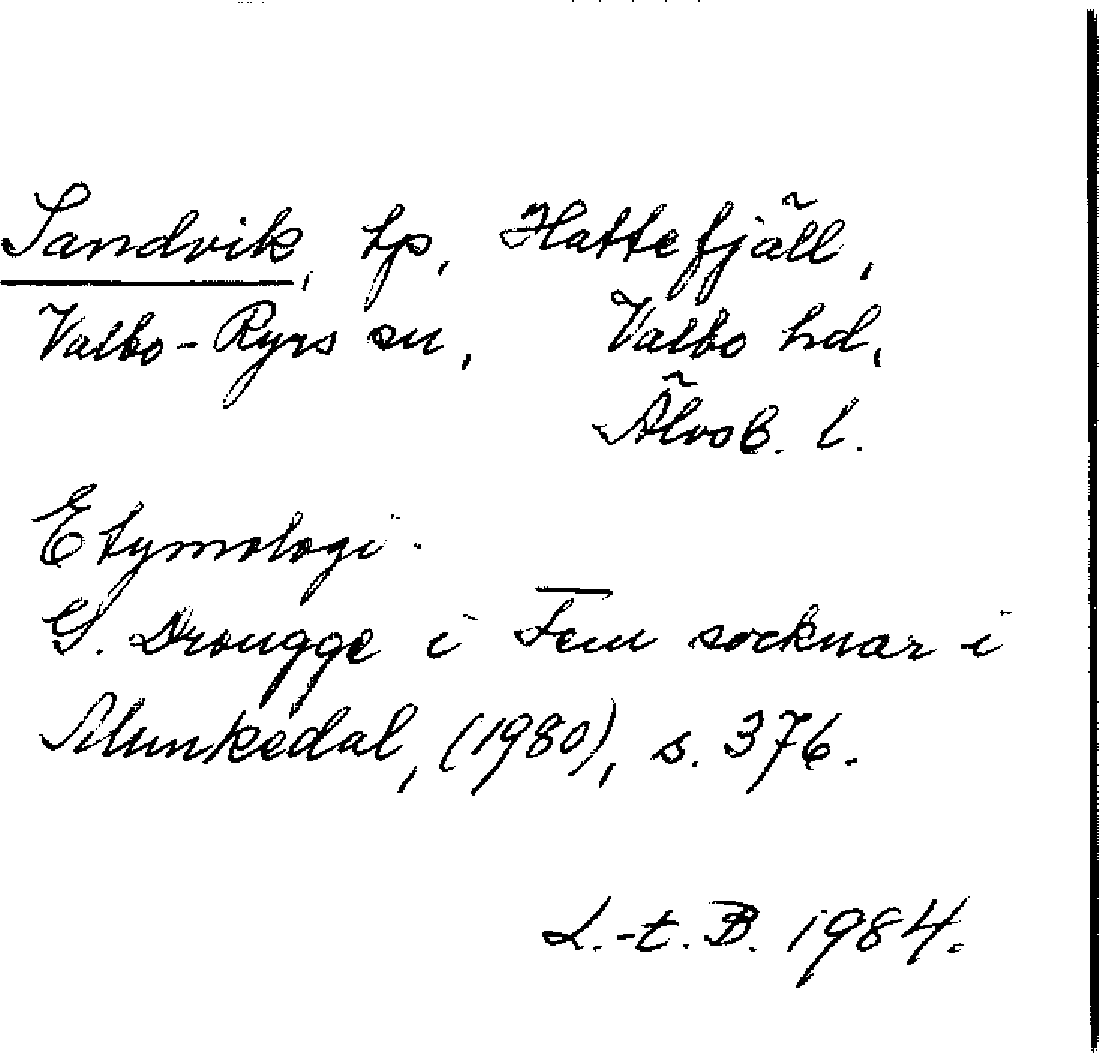 Sandvik, tp, Hattefjäll,
Valbo-Ryrs sn, Valbo hd,
Älvsb. l.
Etymologi.
G. Drougge i Fem socknar i
Munkedal, (1980), s. 376.
L.-t. B. 1984.